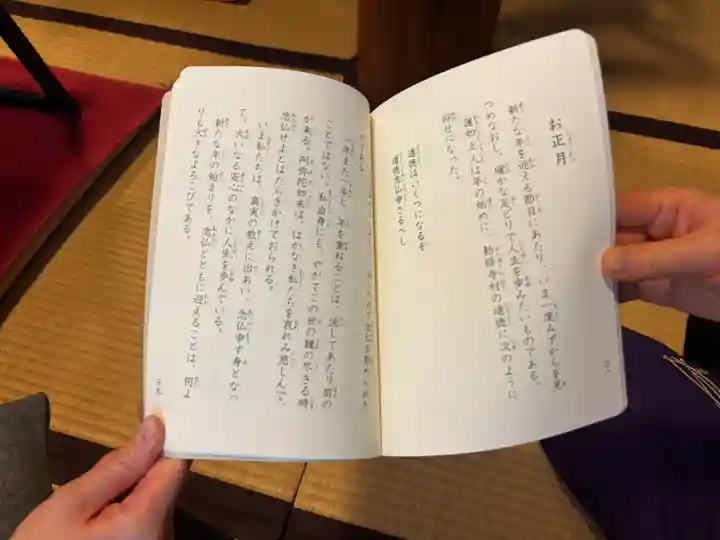 お正月
新たな年を迎える節目にあたり、いま一度みずからを見
つめなおし、確かな足どりで人生を歩みたいものである。
蓮如上人は年の始めに、勧修寺村の道徳に次のように
仰せになった。
道徳はいくつになるぞ
道徳念仏申さるべし
一年また一年と、年を重ねることは、決してあたり前の
ことではない。私自身にも、やがてこの世の縁の尽きる時
が来る。阿弥陀如来は、はかなき私たちを哀れみ悲しんで、
念仏せよとはたらきかけておられる。
いま私たちは、真実の教えに出あい、念仏申す身となっ
て、大いなる安心のなかに人生を歩んでいる。
新たな年の始まりを、念仏とともに迎えることは、何よ
りも大きなよろこびである。
三九